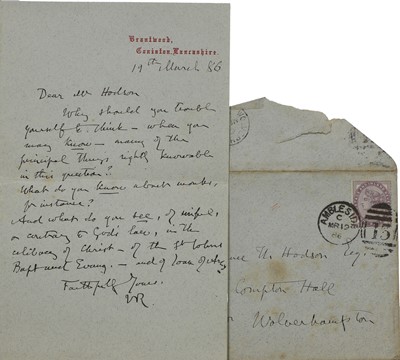 Brantwood,
Coniston, Lancashire.
19th March 86
Dear Mr Hodson
Why should you trouble
yourself to think – when you
may know – many of the
principal things rightly knowable
in this question?
What do you know about monks,
for instance?
And what do you see, of sinful,
or contrary to God's law, in the
celibacy of Christ – of the St Johns
Bapt and Evang. – and of Joan of Arc
Faithfully Yours.
JR
AMBLESIDE
C
MR 19
86
Hodson Esq
Compton Hall
Wolverhampton